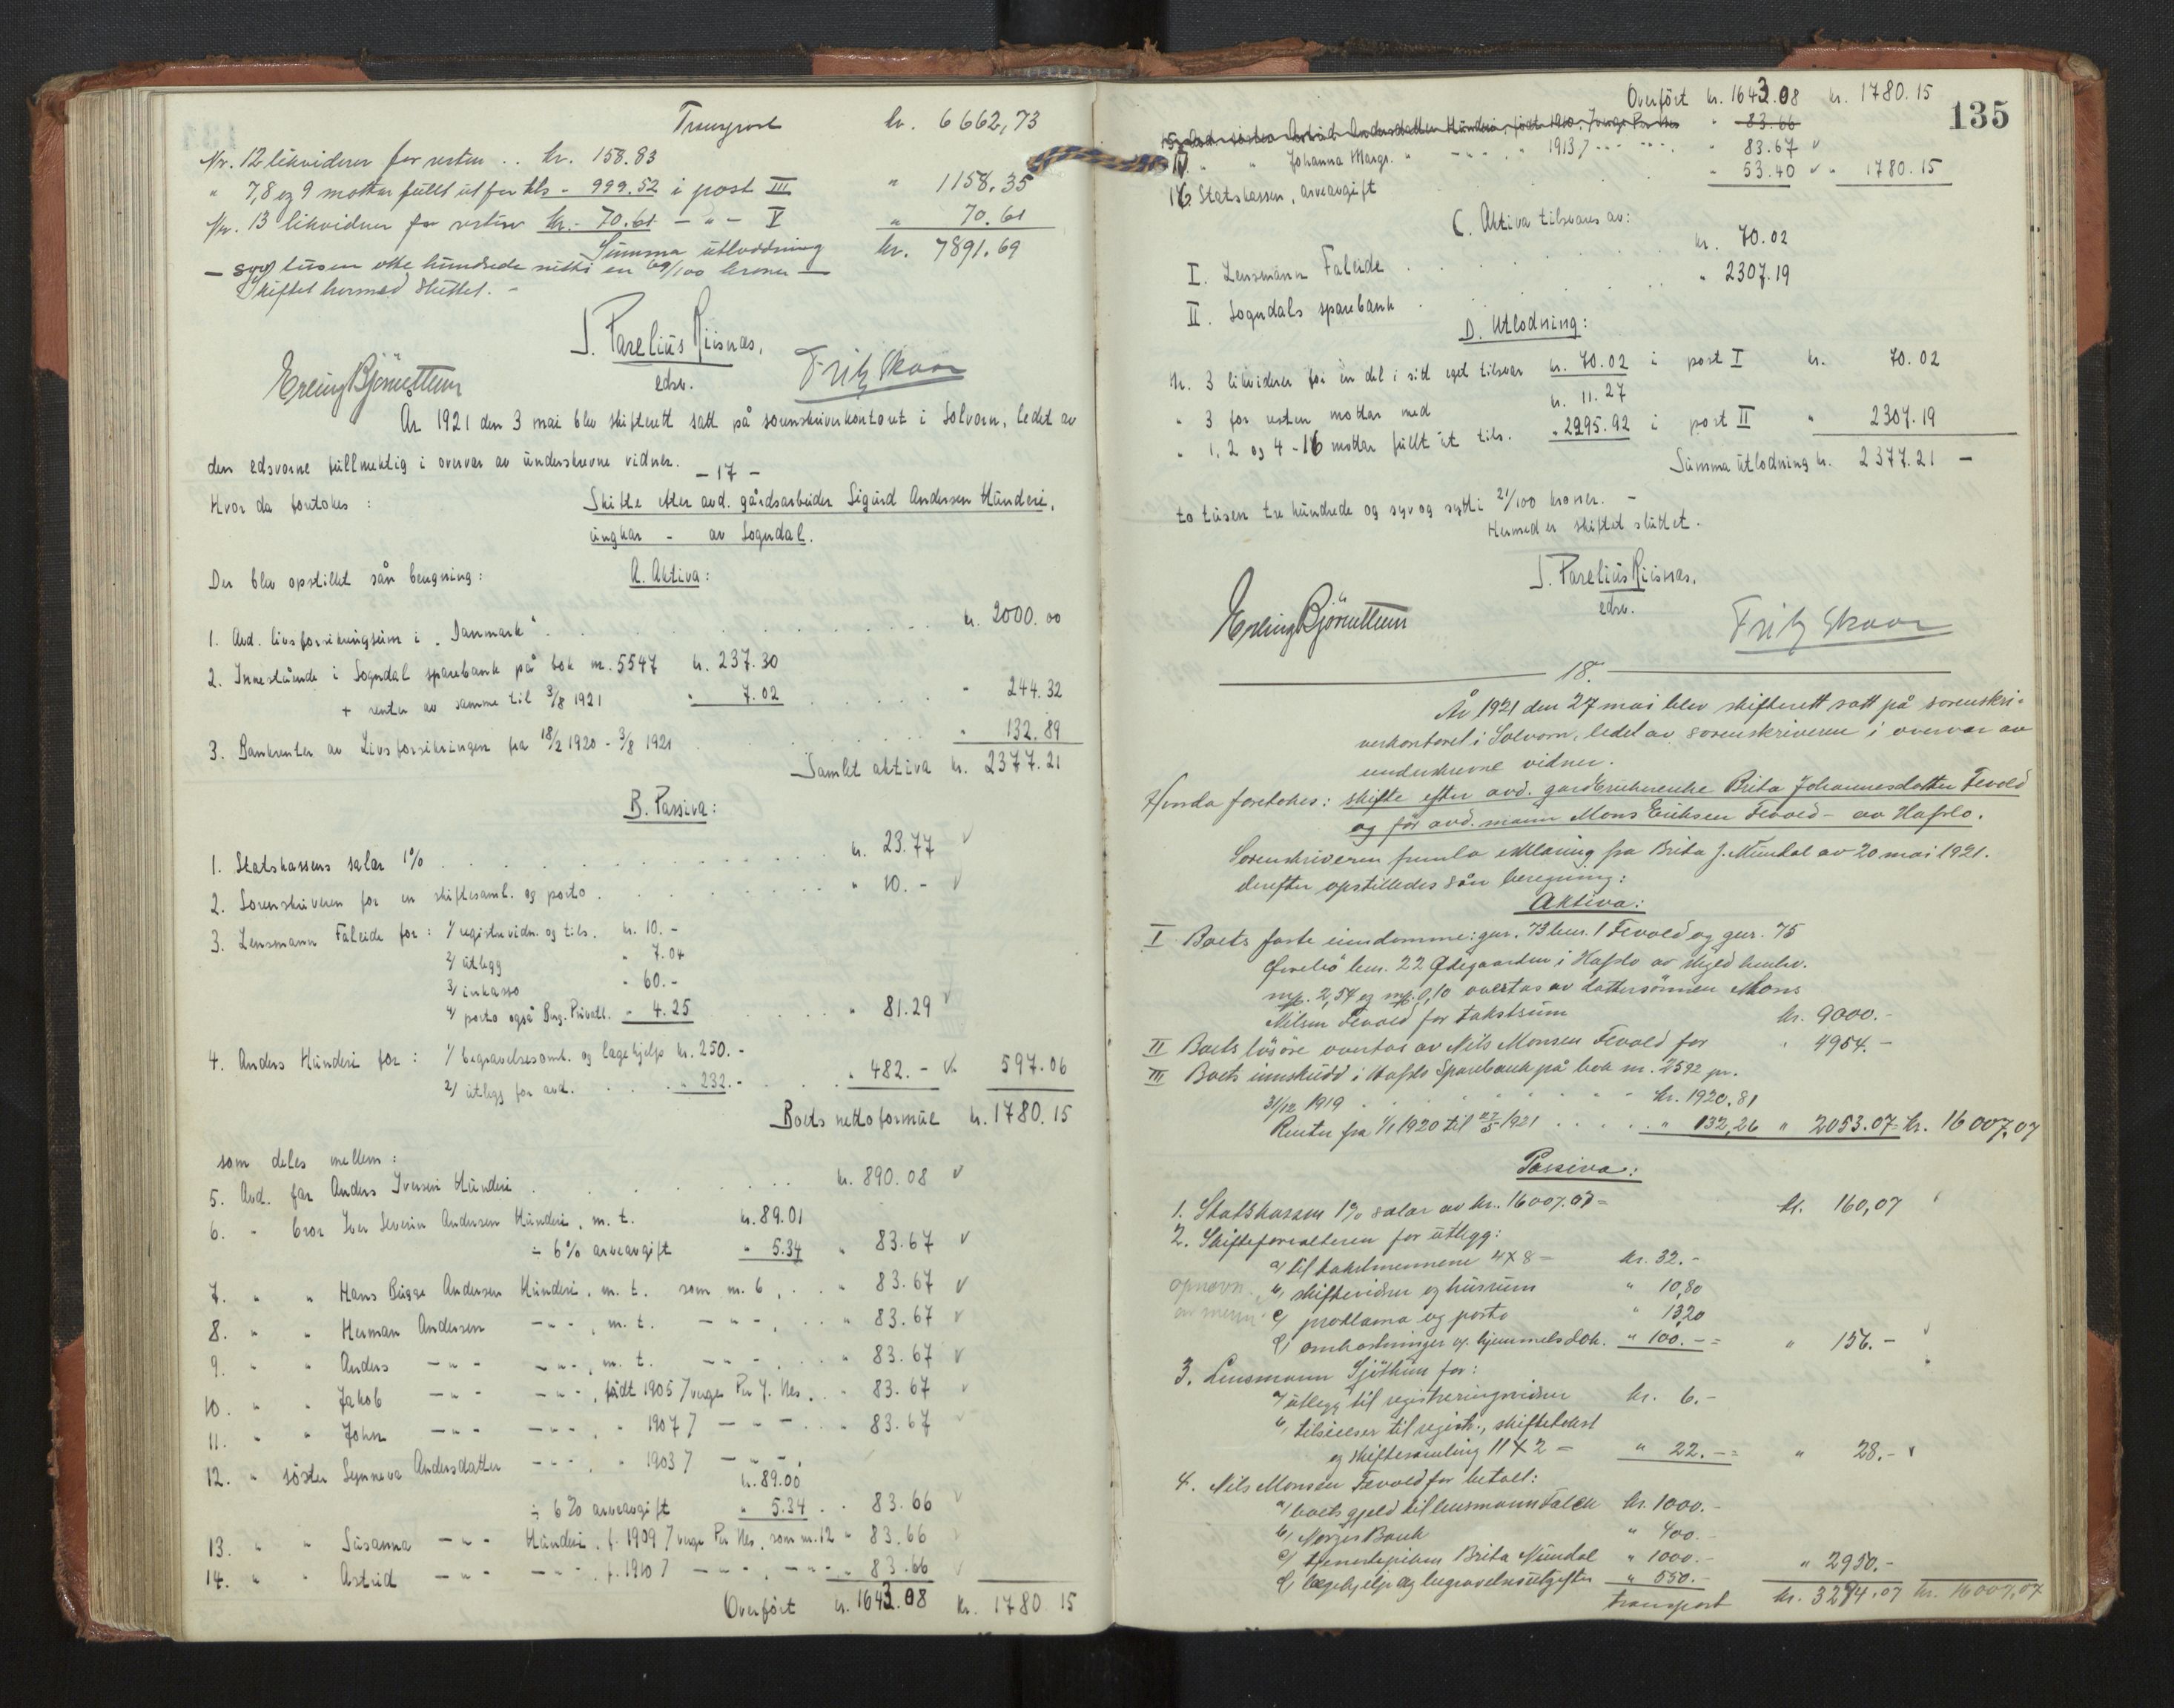 Transport kr. 6662,73
Nr. 12 likviderer for resten .. kr. 158.83
" 7,8 og 9 mottar fullt ut for tils - 999.52 i post III " 1158.35
Nr. 13 likviderer for resten kr. - 70.61 - " - V " 70.61
Summa utloddning kr. 7891.69
- syv tusen otte hundrede nitti en 69/100 kroner -
Skiftet hermed sluttet. -
J. Parelius Riisnæs,
edsv.
Erling Bjørnettum Fritz Skaar
År 1921 den 3 mai blev skifterett satt på sorenskriverkontoret i Solvorn, ledet av
den edsvorne fullmektig i overvær av underskrevne vidner.
- 17 -
Hvor da foretokes : Skifte efter avd. gårdsarbeider Sigurd Andersen Hundere,
ungkar - av Sogndal.
Der blev opstillet sån beregning: A. Aktiva:
1. Avd. livsforsikringsum i "Danmark" . . . kr. 2000.00
2. Innestående i Sogndal sparebank på bok nr. 5547 kr. 237.30
+ renter av samme til 3/8 1921 " 7.02 . . . " 244.32
3. Bankrenter av Livsforsikringen fra 18/2 1920 - 3/8 1921 . . . " 132.89
Samlet aktiva kr. 2377.21
B. Passiva:
1. Statskassens salær 1% . . . kr. 23.77 ✓
2. Sorenskriveren for en skiftesaml. og porto . . . " 10.- ✓
3. Lensmann Faleide for: 1/ registrervidn. og tils. kr. 10.-
2/ utlegg " 7.04
3/ inkasso " 60.-
4/ porto også Berg. Privatb. " 4.25 . . . " 81.29 ✓
4. Anders Hundere for: 1/ begravelsesomk. og lægehjelp kr. 250.-
2/ utlegg for avd. . . . " 232.- . . " 482.- ✓ 597.06
Boets nettoformue kr. 1780.15
som deles mellem:
5. Avd. far Anders Iversen Hundere . . . kr. 890.08 ✓
6. " bror Iver Severin Andersen Hundere, m. t. kr. 89.01
÷ 6% arveavgift " 5.34 " 83.67 ✓
7. " " Hans Bugge Andersen Hundere, m. t. som nr. 6, . . " 83.67 ✓
8. " " Herman Andersen - " -, m. t. - " -, . . " 83.67 ✓
9. " " Anders - " - - " -, m. t. - " -, . . " 83.67 ✓
10. " " Jakob - " - - " -, født 1905 / verge Per J. Nes . . " 83.67 ✓
11. " " Johan - " - - " -, " 1907 / - " - . . " 83.67 ✓
12. " søster Synneva Andersdatter - " -, " 1903 / - " - , kr. 89.00
÷ 6% arveavgift " 5.34 . " 83.66 ✓
13. " " Susanna - " - Hundere, f. 1909 / verge Per Nes, som nr. 12 " 83.66
14. " " Astrid - " - - " -, f. 1910 / - " -, - " - " 83.66 ✓
Overført kr. 1643.08 kr. 1780.15
135
Overført kr. 1643.08 kr. 1780.15
15. Avd. søster Astrid Andersdatter Hundere, født 1910. / verge Per Nes " 83.66
" " Johanna Margr. " - " - " 1913 / - " - " 83.67 ✓
16. Statskassen, arveavgift " 53.40 ✓ " 1780.15
C. Aktiva tilsvares av:
I. Lensmann Faleide . . . kr. 70.02
II. Sogndals sparebank . . . " 2307.19
D. Utlodning:
Nr. 3 likviderer for en del i sitt eget tilsvar kr. 70.02 i post I kr. 70.02
" 3 for resten mottar med kr. 11.27
" 1, 2 og 4-16 mottar fullt ut tils. " 2295.92 i post II " 2307.19
Summa utlodning kr. 2377.21 -
to tusen tre hundrede og syv og sytti 21/100 kroner. -
Hermed er skiftet sluttet.
J. Parelius Riisnæs,
edsv.
Erling Bjørnettum Fritz Skaar
18.
År 1921 den 27 mai blev skifterett satt på sorenskri-
verkontoret i Solvorn, ledet av sorenskriveren i overvær av
underskrevne vidner.
Hvorda foretokes: skifte efter avd. gardbrukerenke Brita Johannesdatter Fevold
og før avd. mann Mons Eriksen Fevold - av Hafslo.
Sorenskriveren fremla erklæring fra Brita J. Mundal av 20 mai 1921.
derefter opstilledes sån beregning:
Aktiva:
I Boets faste eiendomme: gnr. 73 bnr. 1 Fevold og gnr. 75
bnr. 22 Ødegaarden i Hafslo av skyld henhv.
mrk. 2,54 og mrk. 0,10 overtas av dattersønnen Mons
Nilsen Fevold for takstsum kr. 9000.-
II Boets løsøre overtas av Nils Monsen Fevold for " 4954.-
III Boets innskudd i Hafslo Sparebank på bok nr. 2592 pr.
31/12 1919 . . . kr. 1920.81
Renter fra 1/1 1920 til 27/5 1921 . . . " 132,26 " 2053.07 = kr. 16007,07
Passiva:
1. Statskassen 1% salær av kr. 16007.07 = kr. 160,07
2. Skifteforvalteren for utlegg:
a/ til takstmennene 4 x 8 = kr. 32.-
opnevn. b/ skiftevidner og husrum " 10,80
av menn c/ proklama og porto " 13,20
d/ omkostninger v. hjemmelsdok. " 100.- = " 156.-
3. Lensmann Sjøthun for:
a/ utlegg til registreringsvidner kr. 6.-
b/ tilsielser til registr., skiftetakst
og skiftesamling 11 x 2 = " 22.- = " 28.- ✓
4. Nils Monsen Fevold for betalt:
a/ boets gjeld til lensmann Falch kr. 1000.-
b/ Norges Bank " 400.-
c/ tjenestepiken Brita Mundal " 1000.-
d/ lægehjelp og begravelsesutgifter " 550.- " 2950.-
transport kr. 3294.07 kr. 16007,07